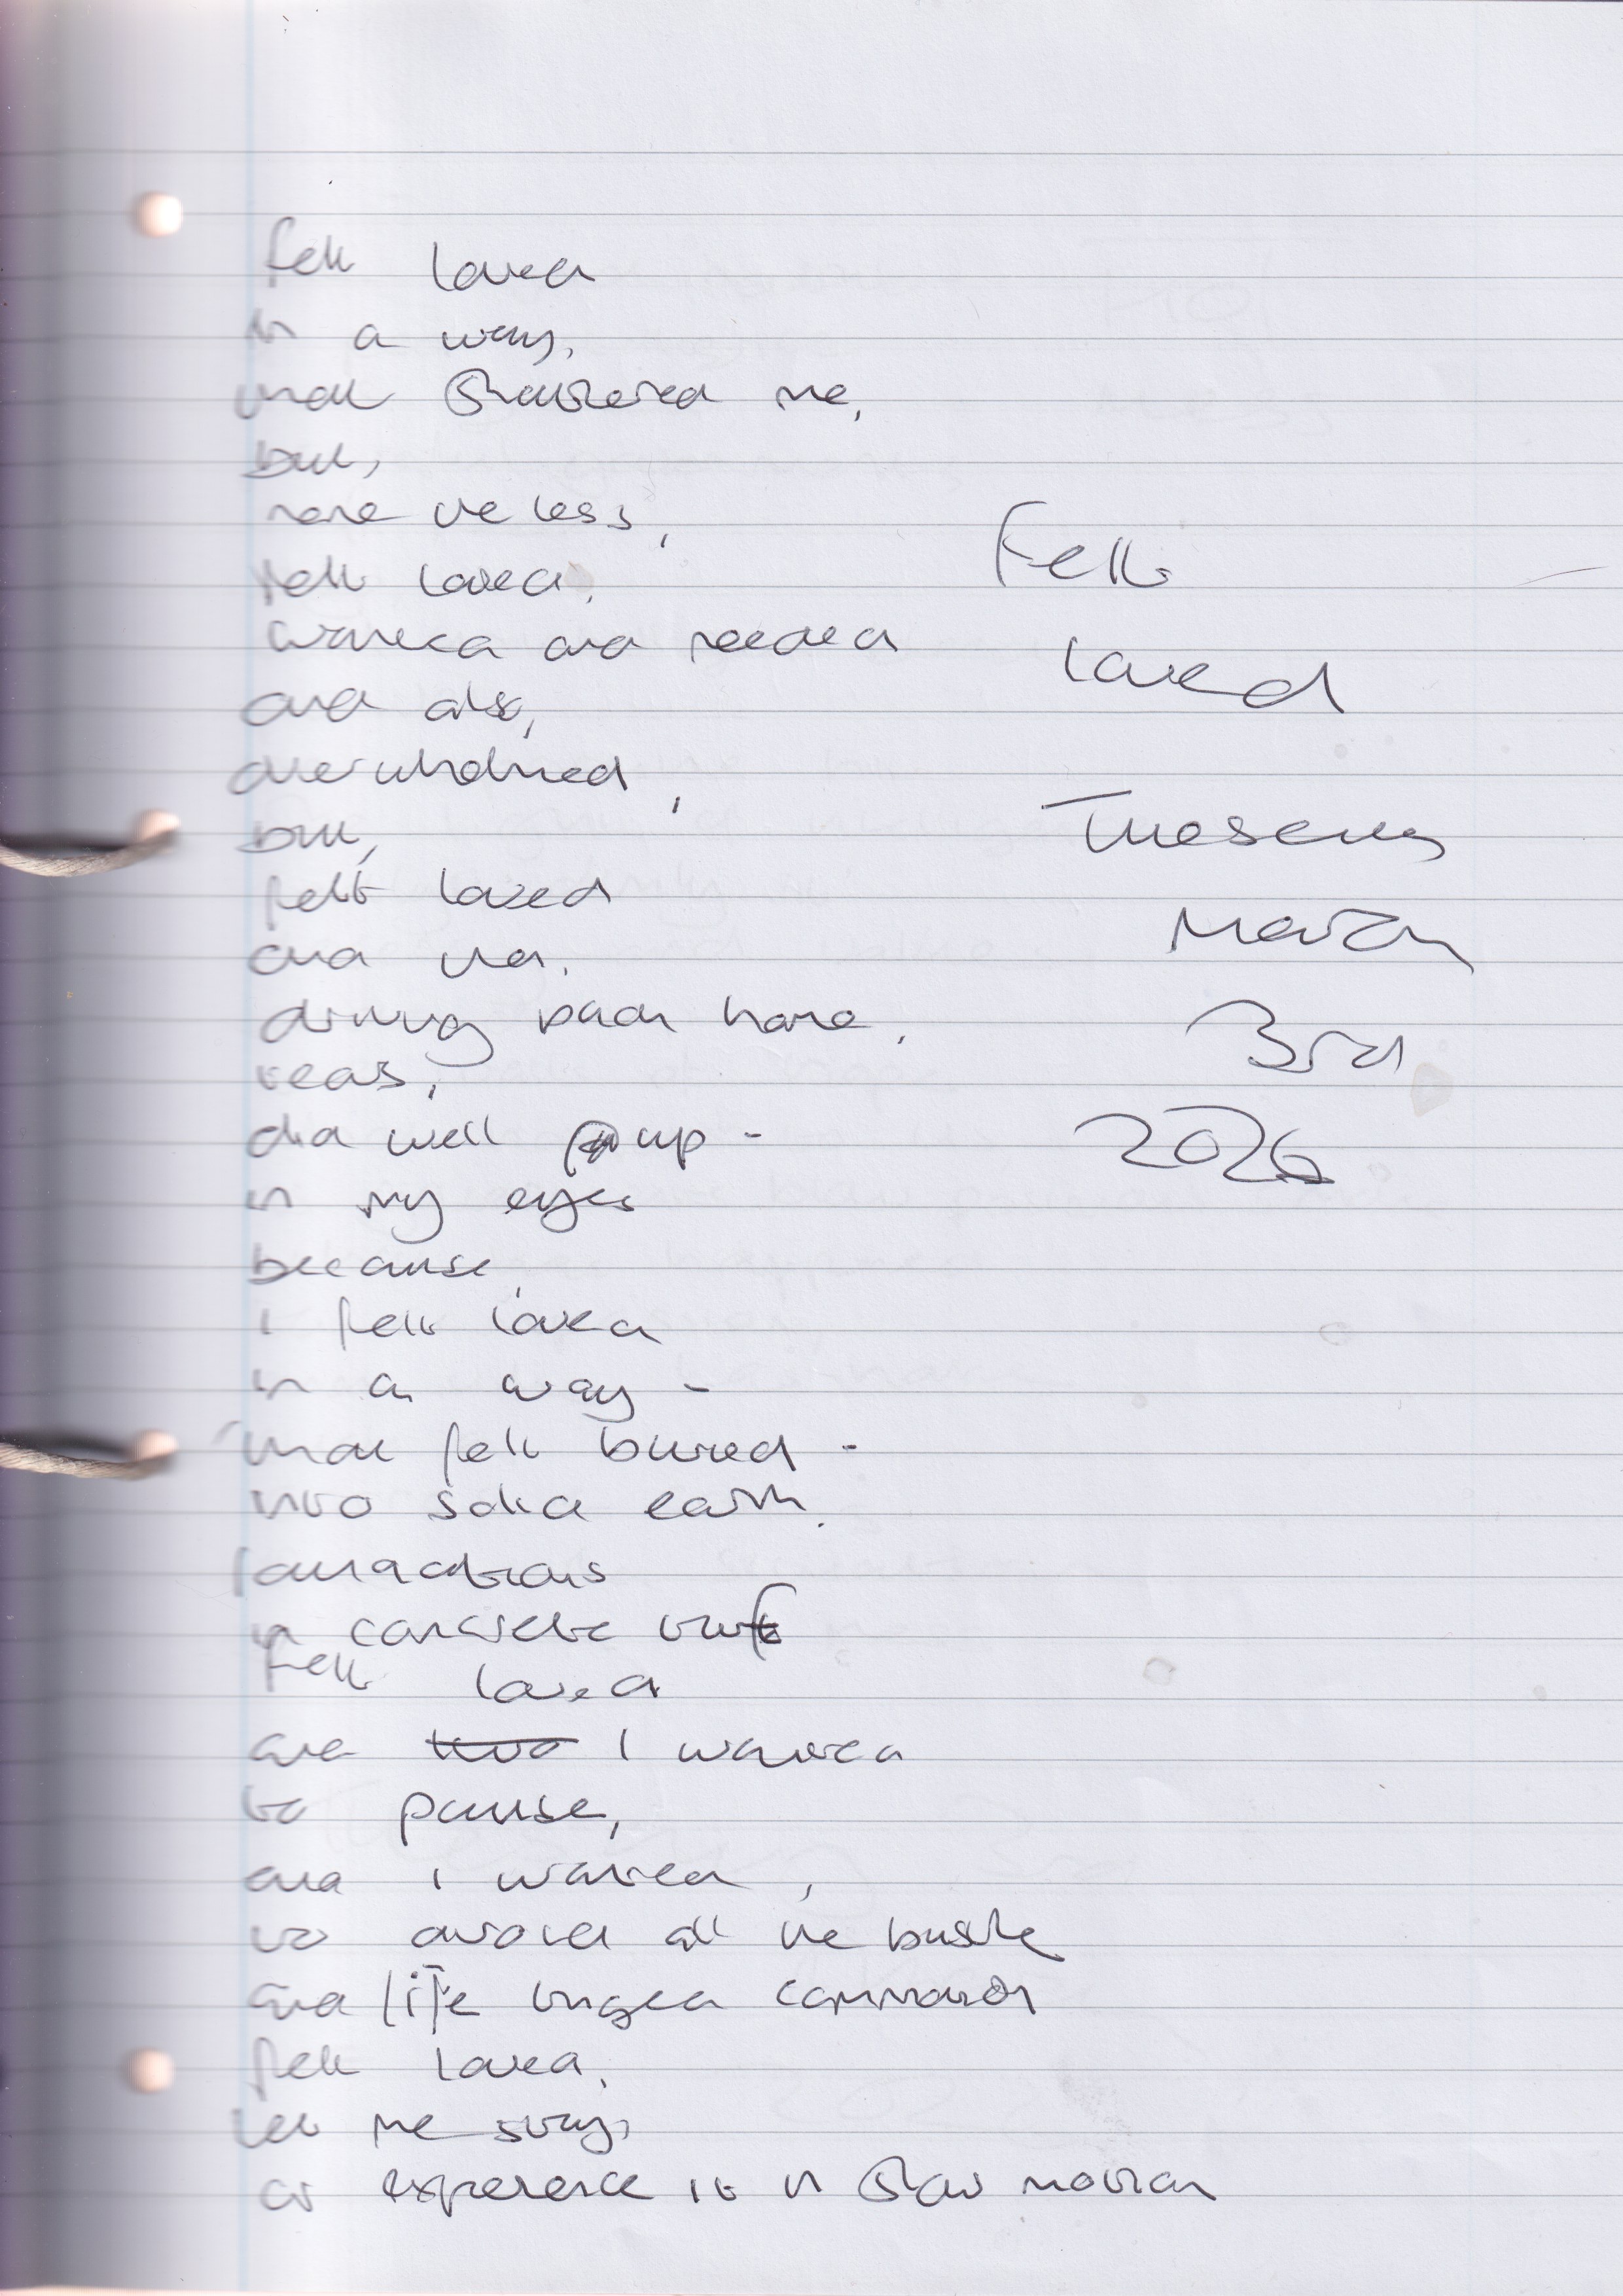 felt loved
in a way,
that shattered me,
but,
none the less,
felt loved,
wanted and needed
and also,
overwhelmed,
but,
felt loved
and then,
driving back home,
tears,
did well up -
in my eyes
because,
I felt loved
in a way -
that felt buried -
into solid earth,
foundations
in concrete
felt loved
and I wanted
to pause,
and I wanted,
to avoid all the bustle
and life tinged
felt loved,
let me stay,
or experience it in slow motion
Felt
loved
Tuesday
March
3rd
2026